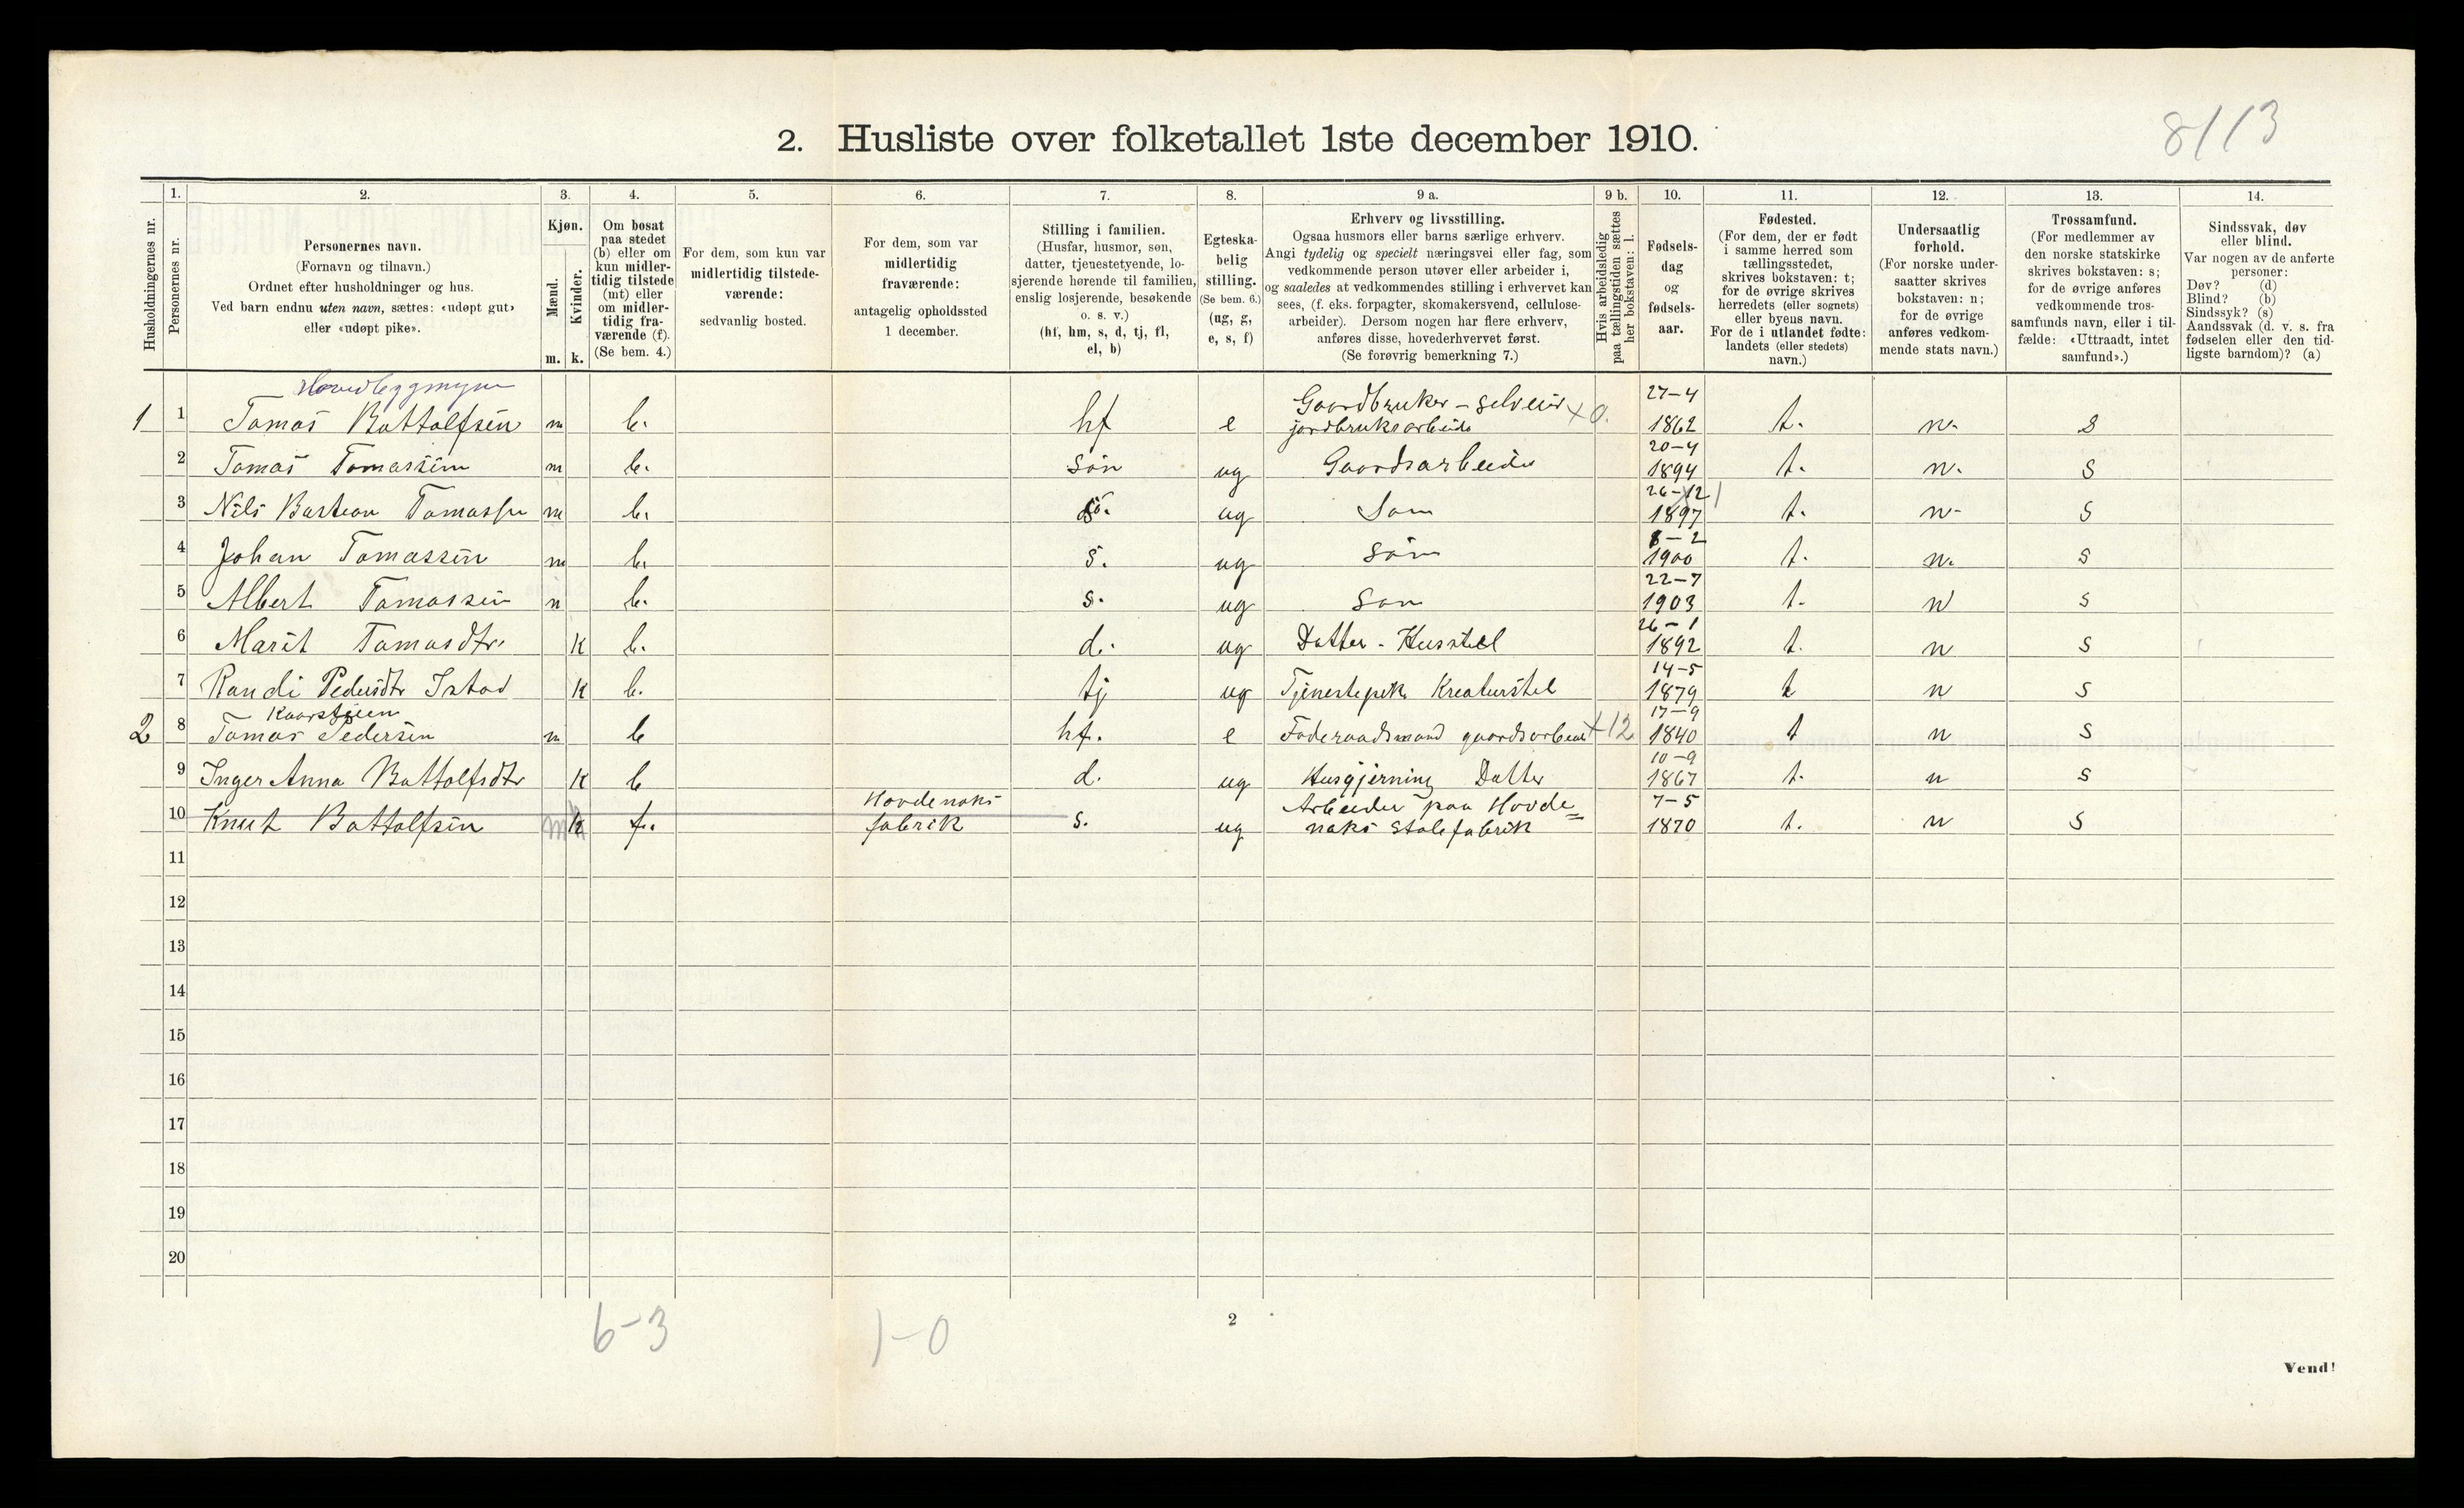 8/13
2. Husliste over folketallet 1ste december 1910.
1. 2. 3. 4. 5. 6. 7. 8. 9 a. 9 b. 10. 11. 12. 13. 14.
Husholdningernes nr.
Personernes nr.
Personernes navn.
(Fornavn og tilnavn.)
Ordnet efter husholdninger og hus.
Ved barn endnu uten navn, sættes: «udøpt gut»
eller «udøpt pike».
Kjøn.
Mænd.
Kvinder.
m. k.
Om bosat
paa stedet
(b) eller om
kun midler-
tidig tilstede
(mt) eller
om midler-
tidig fra-
værende (f).
(Se bem. 4.)
For dem, som kun var
midlertidig tilstede-
værende:
sedvanlig bosted.
For dem, som var
midlertidig
fraværende:
antagelig opholdssted
1 december.
Stilling i familien.
(Husfar, husmor, søn,
datter, tjenestetyende, lo-
sjerende hørende til familien,
enslig losjerende, besøkende
o. s. v.)
(hf, hm, s, d, tj, fl,
el, b)
Egteska-
belig
stilling.
(Se bem. 6.)
(ug, g,
e, s, f)
Erhverv og livsstilling.
Ogsaa husmors eller barns særlige erhverv.
Angi tydelig og specielt næringsvei eller fag, som
vedkommende person utøver eller arbeider i,
og saaledes at vedkommendes stilling i erhvervet kan
sees, (f. eks. forpagter, skomakersvend, cellulose-
arbeider). Dersom nogen har flere erhverv,
anføres disse, hovederhvervet først.
(Se forøvrig bemerkning 7.)
Hvis arbeidsledig
paa tællingstiden sættes
her bokstaven: l.
Fødsels-
dag
og
fødsels-
aar.
Fødested.
(For dem, der er født
i samme herred som
tællingsstedet,
skrives bokstaven: t;
for de øvrige skrives
herredets (eller sognets)
eller byens navn.
For de i utlandet fødte:
landets (eller stedets)
navn.)
Undersaatlig
forhold.
(For norske under-
saatter skrives
bokstaven: n;
for de øvrige
anføres vedkom-
mende stats navn.)
Trossamfund.
(For medlemmer av
den norske statskirke
skrives bokstaven: s;
for de øvrige anføres
vedkommende tros-
samfunds navn, eller i til-
fælde: «Uttraadt, intet
samfund».)
Sindssvak, døv
eller blind.
Var nogen av de anførte
personer:
Døv? (d)
Blind? (b)
Sindssyk? (s)
Aandssvak (d. v. s. fra
fødselen eller den tid-
ligste barndom)? (a)
Gaardbruker – selveier 27–4
1 1 Tomas Bottolfsen m b. hf e jordbruksarbeide x0. 1862 t. n. s
20–4
2 Tomas Tomassen m b. Søn ug Gaardsarbeide 1894 t. n. s
26–12
3 Nils Bastian Tomassen m b. s. ug Søn 1897 t. n s
8–2
4 Johan Tomassen m b. s. ug Søn 1900 t. n. s
22–7
5 Albert Tomassen m b. s. ug Søn 1903 t. n s
26–1
6 Marit Tomasdtr k b. d. ug Datter - Husstel 1892 t. n s
14–5
7 Randi Pedersdtr Istad k b. tj ug Tjenestepike Kreaturstel 1879 t n s
17–9
2 8 Tomas Pedersen m b hf. e Føderaadsmand gaardsarbeide +12 1840 t n s
10–9
9 Inger Anna Bottolfsdtr k b d. ug Husgjerning Datter 1867 t. n s
Hovdenaks Arbeider paa Hovde 7–5
10 Knut Bottolfsen m k f. fabrik s. ug naks stolefabrik 1870 t. n s
11
12
13
14
15
16
17
18
19
20
6–3 1–0
2
Vend!